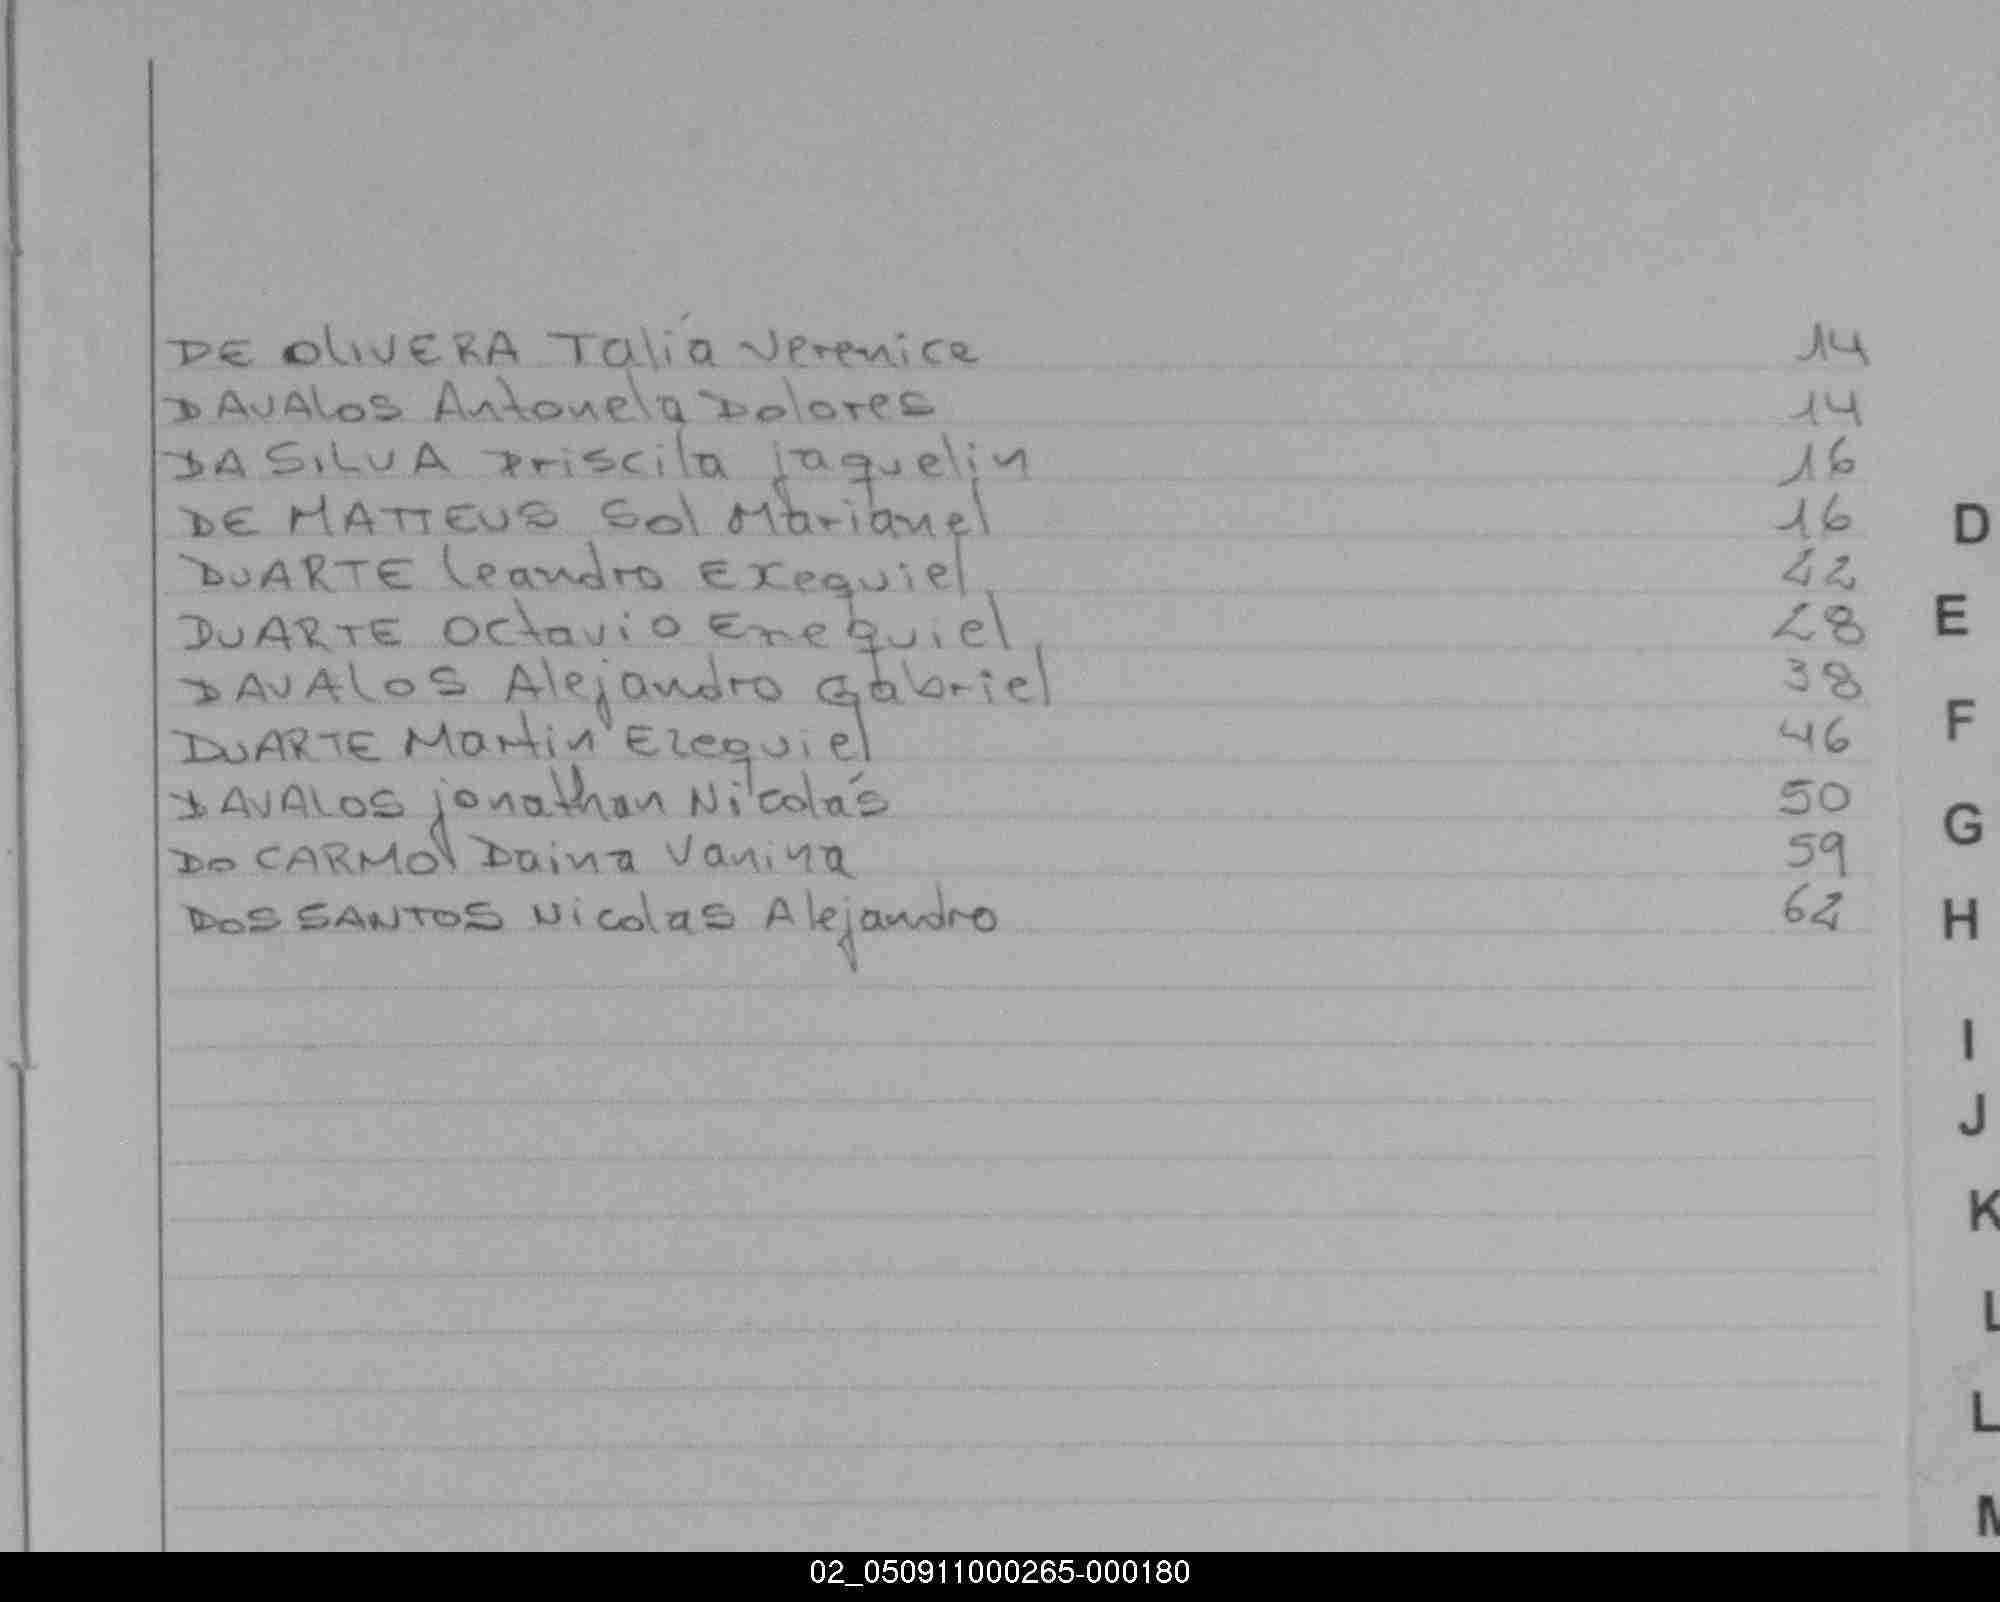 DE OLIVERA Talía Verenice 14
DAVALOS Antonela Dolores 14
DA SILVA Priscila jaquelin 16
DE MATTEUS Sol Marianel 16
DUARTE Leandro Exequiel 22
DUARTE Octavio Exequiel 28
DAVALOS Alejandro Gabriel 38
DUARTE Martin Ezequiel 46
DAVALOS jonathan Nicolás 50
DO CARMO Daina Vanina 59
DOS SANTOS Nicolas Alejandro 62
D
E
F
G
H
I
J
K
L
L
M
02_050911000265-000180